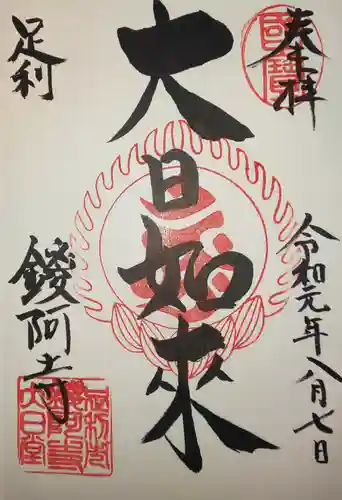 奉拝
令和元年八月七日
大日如来
足利
鑁阿寺
大日堂